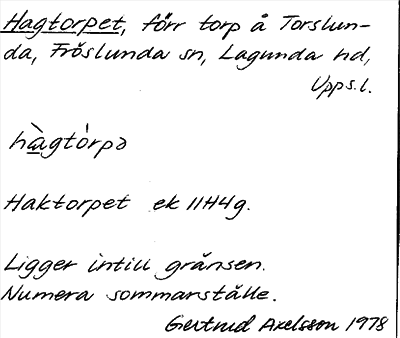 Hagtorpet, förr torp å Torslun-
da, Fröslunda sn, Lagunda hd,
Upps.l.
hàgtórpə
Haktorpet ek 11H4g.
Ligger intill gränsen.
Numera sommarställe.
Gertrud Axelsson 1978